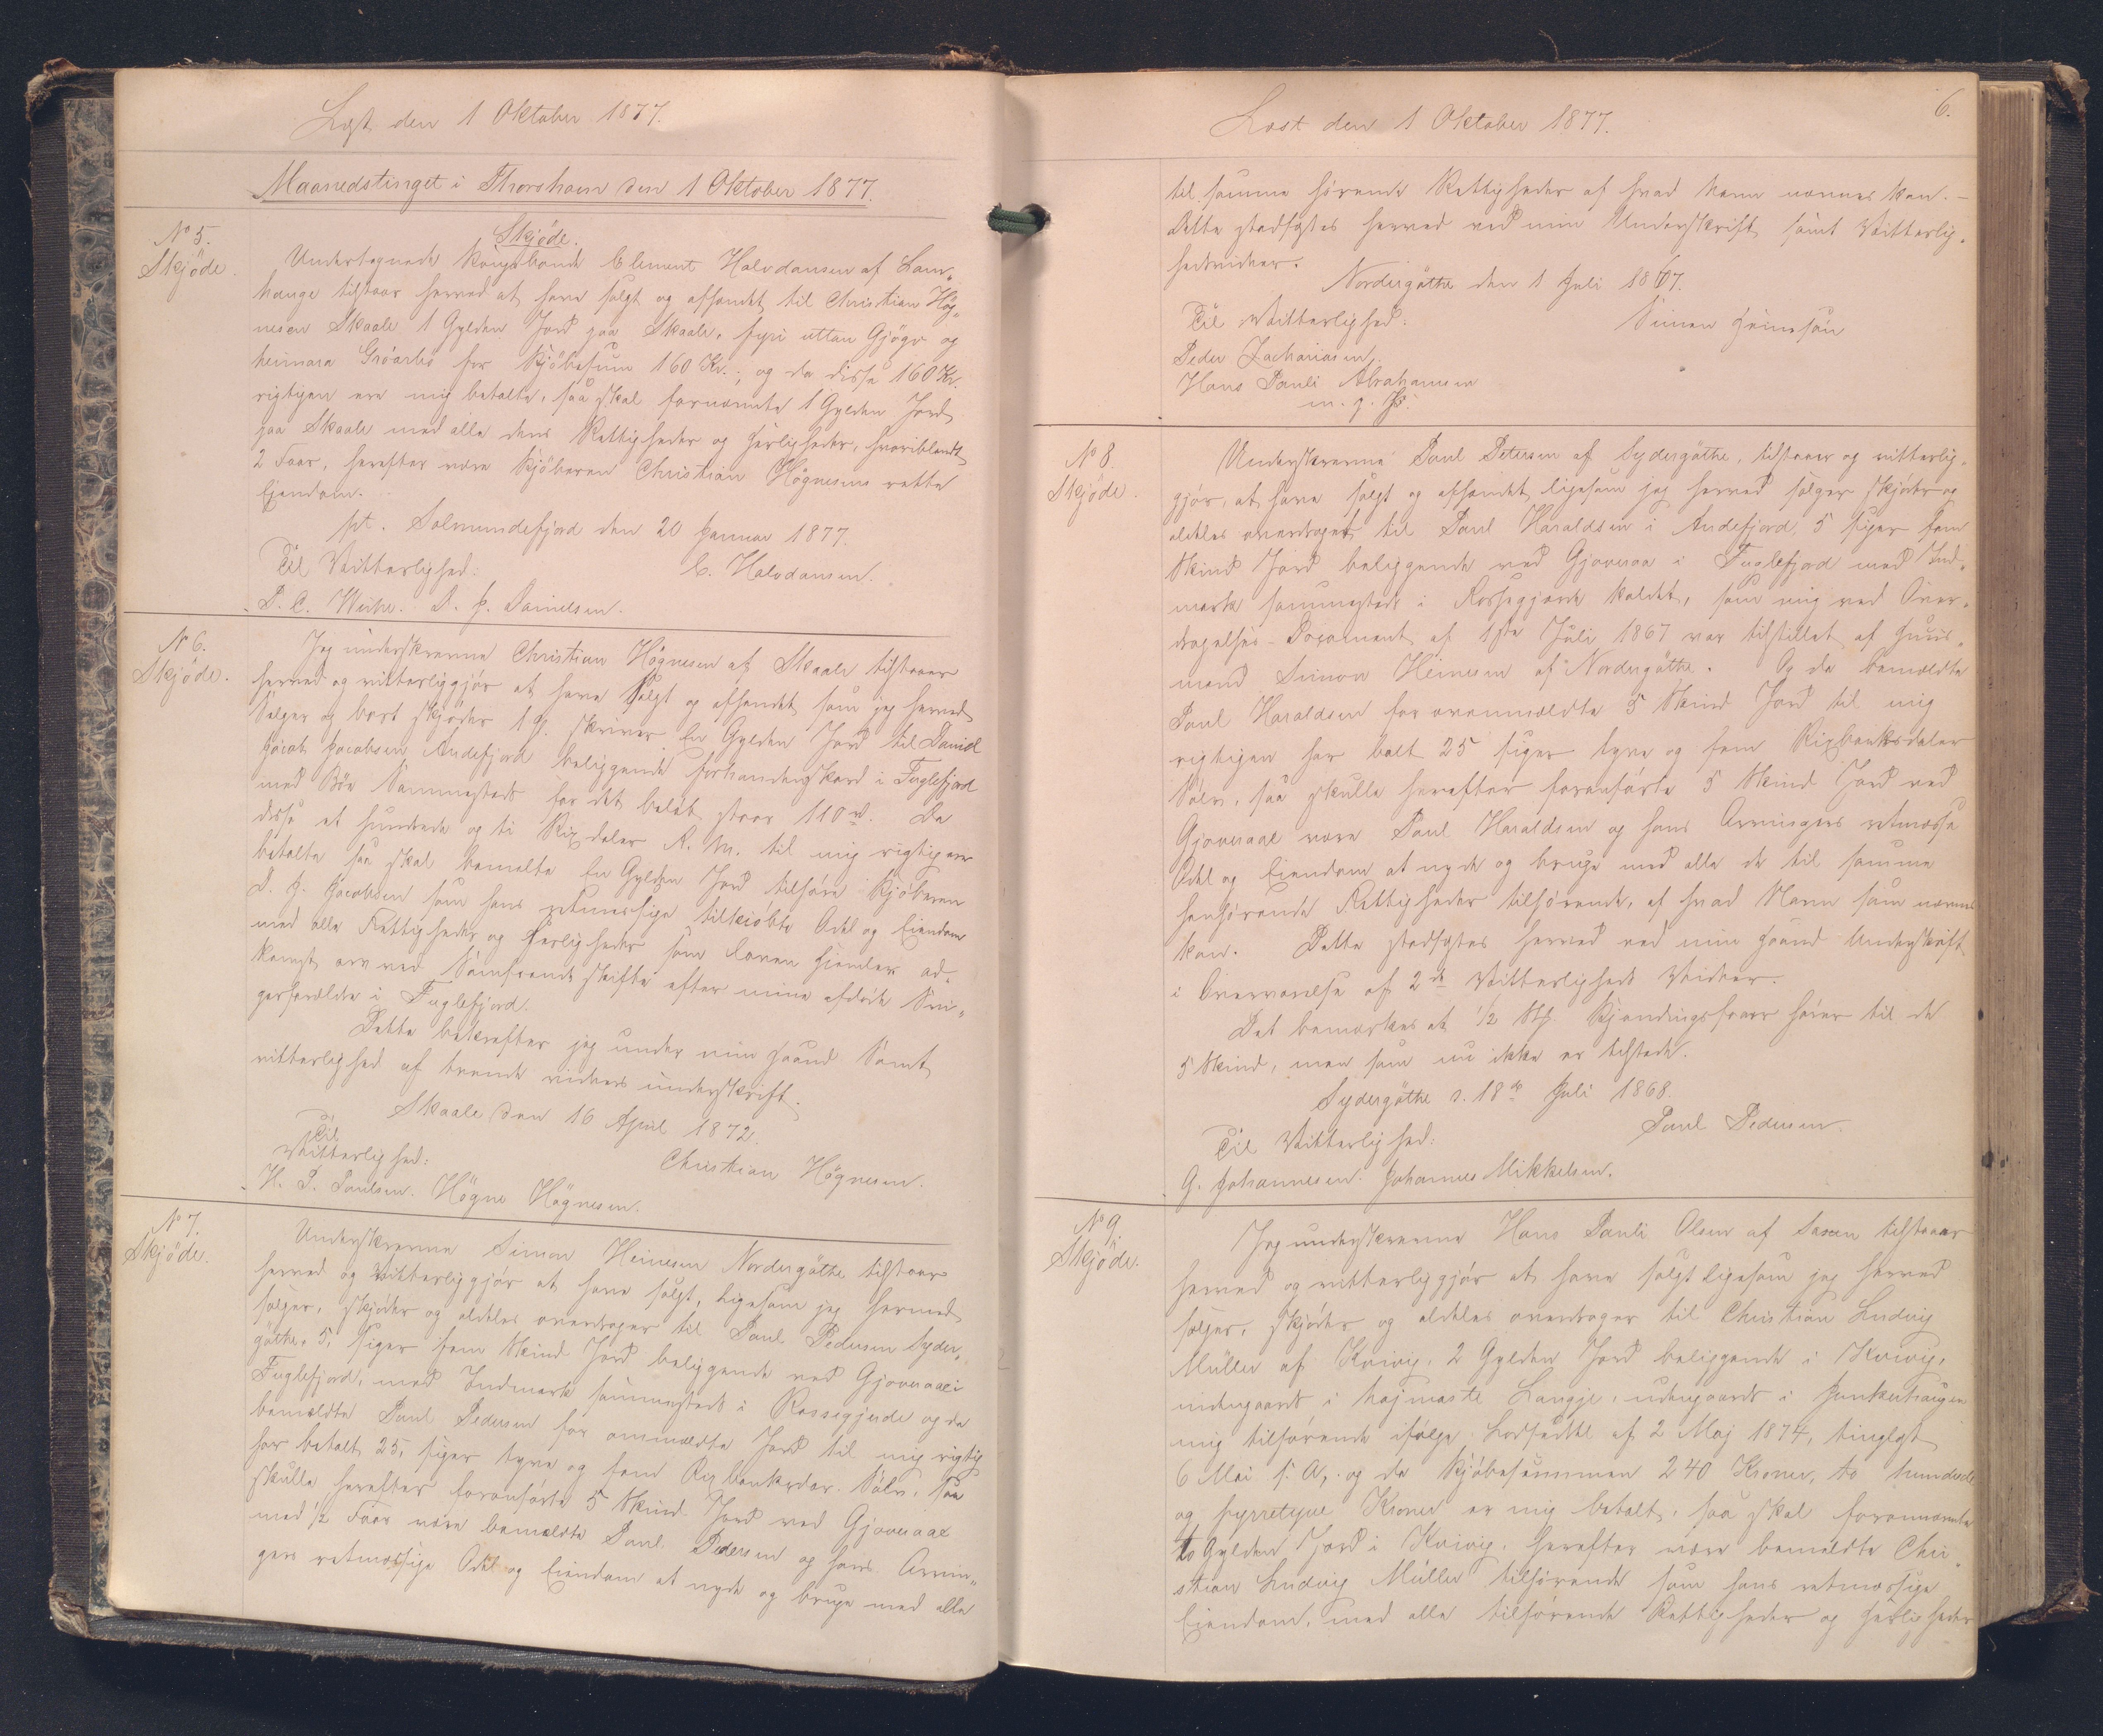 Læst den 1 Oktober 1877.
Maanedstinget i Thorshavn den 1 Oktober 1877.
No 5.
Skjøde.
Skjøde.
Undertegnede Kongsbonde Clement Halvdansen af Lam-
hauge tilstaar herved at have solgt og afhændet til Christian Hög-
nesen Skaale 1 Gylden Jord paa Skaale, fyri uttan Gjógv og
heimara Gróarbö for Kjöbesum 160 Kr.; og da disse 160 Kr.
rigtigen ere mig betalte, saa skal fornævnte 1 Gylden Jord
paa Skaale med alle dens Rettigheder og Herligheder, hvoriblandt
2 Faar, herefter være Kjöberen Christian Högnesens rette
Eiendom.
pt. Solmundefjord den 20 Januar 1877.
Til Vitterlighed: C. Halvdansen.
D. C. Weihe. D. J. Danielsen.
N 6.
Skjøde.
Jeg underskrevne Christian Högnesen af Skaale tilstaar
herved og vitterliggjör at have Solgt og afhændet som jeg herved
Sælger og bort skjøder 1 G. skriver En Gylden Jord til Daniel
Jacob Jacobsen Andefjord beliggende i Fuglefjord
med Böe Sammesteds for det beløb stor 110 rd. Da
disse et hundrede og ti Rix daler R. M. til mig rigtig ere
betalte saa skal bemelte En Gylden Jord tilhöre Kjöberen
D. J. Jacobsen som hans retmessige tilkiöbte Odel og Eiendom
med alle Rettigheder og Herligheder som Loven hjemler ad-
komst arv ved Samfrende skifte efter mine afdøde Svi-
gerforældre i Fuglefjord.
Dette bekræfter jeg under min Haand Samt
vitterlighed af tvende vidners underskrift.
Skaale den 16 April 1872.
Til
Vitterlighed: Christian Högnesen.
H. D. Poulsen. Högne Högnesen.
No 7.
Skjøde.
Underskrevne Simon Heinesen Nordregöthe tilstaar
herved og vitterliggjör at have solgt, ligesom jeg hermed
sælger, skjøder og aldeles overdrager til Poul Pedersen Syder-
göthe, 5, siger fem Skind Jord beliggende ved Gjoveraaei
Fuglefjord, med Indmark sammesteds i Rossegjerde og da
bemeldte Poul Pedersen for ommældte Jord til mig rigtig
har betalt 25, siger tyve og fem Rigsbankdaler Sölv, saa
skulle herefter foranførte 5 Skind Jord ved Gjoveraae
med ½ Faar være bemeldte Poul Pedersen og hans Arvin-
gers retmæssige Odel og Eiendom at nyde og bruge med alle
6.
Læst den 1 Oktober 1877.
til samme hörende Rettigheder af hvad Navn nævnes kan.-
Dette stadfæstes herved ved min Underskrift samt Vitterlig-
hedsvidner.
Nordregöthe den 1 Juli 1867.
Til Vitterlighed: Simen Heinesön
Peder Zachariasen.
Hans Pauli Abrahamsen
No 8.
Skjøde.
Underskrevne Poul Petersen af Sydergöthe, tilstaar og vitterlig-
gjör, at have solgt og afhændet ligesom jeg herved sælger skjøder og
aldeles overdrager til Poul Haraldsen i Andefjord, 5 siger fem
Skind Jord beliggende ved Gjoveraa i Fuglefjord med Ind-
mark sammesteds i Rossegjerde kaldet, som mig ved Over-
dragelses-Document af 1ste Juli 1867 var tilstillet af Huus-
mand Simon Heinesen af Nordregöthe. Og da bemeldte
Poul Haraldsen for ovenmældte 5 Skind Jord til mig
rigtigen har bealt 25 siger tyve og fem Rigsbankdaler
Sölv, saa skulle herefter foranförte 5 Skind Jord ved
Gjoveraae være Poul Haraldsen og hans Arvingers retmæsse
Odel og Eiendom at nyde og bruge med alle de til samme
henhörende Rettigheder tilhörende, af hvad Navn som nævnes
kan. Dette stadfæstes herved ved min Haand Underskrift
i Overværelse af 2de Vitterligheds Vidner.
Det bemærkes at ½ Stk. hører til de
5 Skind, men som nu ikke er tilstede.
Sydergöthe d. 18de Juli 1868.
Til Vitterlighed: Poul Pedersen.
G. Johannesen. Johannes Mikkelsen.
No 9.
Skjøde.
Jeg underskrevne Hans Pauli Olsen af Saxen tilstaar
herved og vitterliggjör at have solgt ligesom jeg herved
sælger, skjøder og aldeles overdrager til Christian Ludvig
Müller af Kvivig, 2 Gylden Jord beliggende i Kvivig,
indengaards i Langje, udengaards i Junkenhaugen
mig tilhørende ifølge Lodseddel af 2 Maj 1874, tinglyst
6 Mai s. A., og da Kjöbesummen 240 Kroner, to hundrede
og fyrretyve Kroner er mig betalt, saa skal forannævnte
to Gylden Jord i Kvivig, herefter være bemeldte Chri-
stian Ludvig Müller tilhørende som hans retmæssige
Eiendom, med alle tilhørende Rettigheder og Herligheder